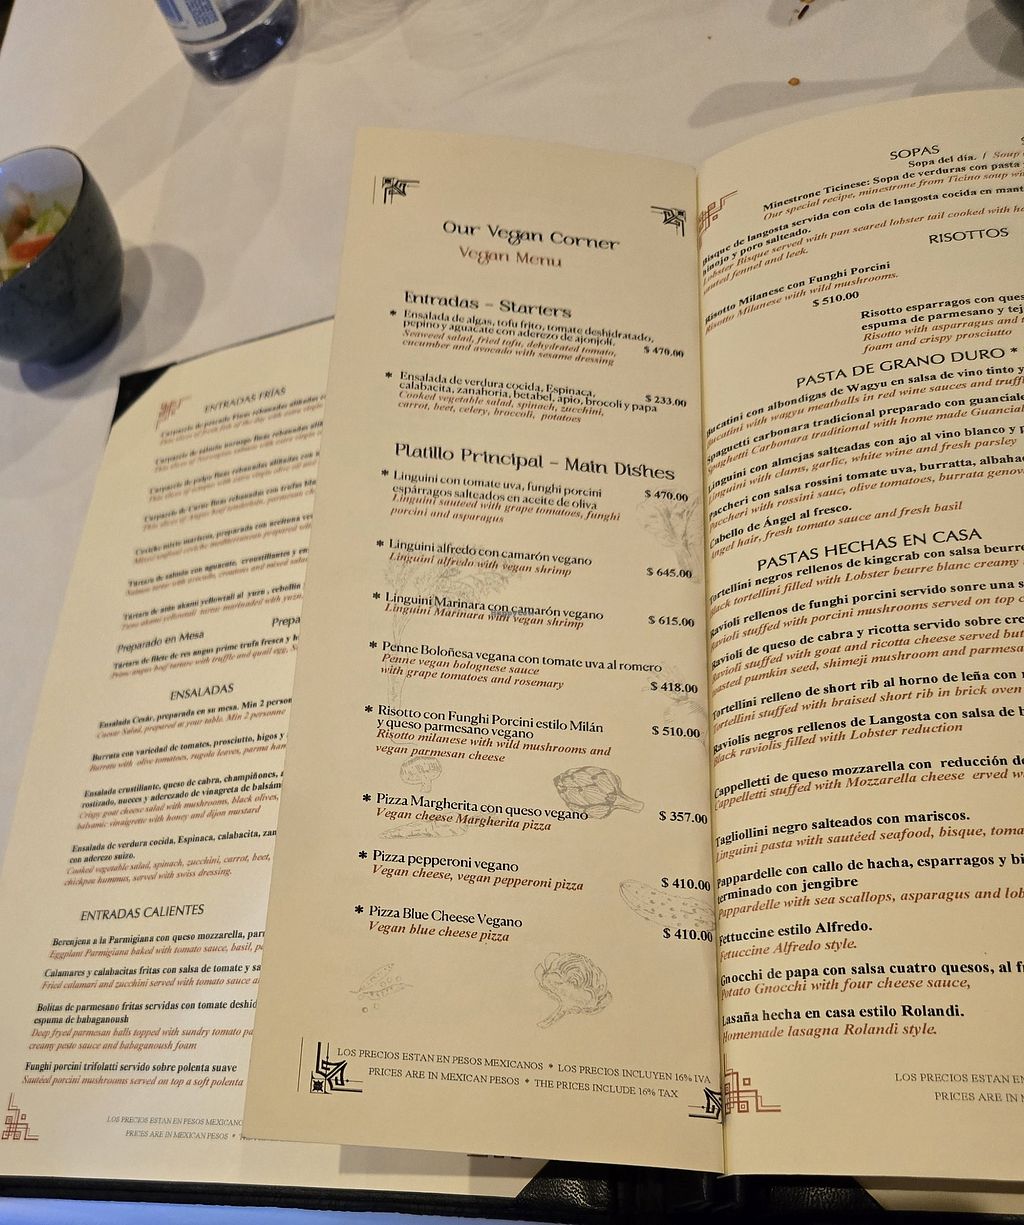 ENTRADAS FRÍAS
Preparado en Mesa
ENSALADAS
Ensalada Cesár, preparada en su mesa. Min 2 person
Caesar Salad, prepared at your table. Min 2 personne
Burrata con variedad de tomates, prosciutto, higos y
Burrata with olive tomatoes, rugola leaves, parma ham
Ensalada crustillante, queso de cabra, champiñones,
rostizado, nueces y aderezado de vinagreta de balsám
Crispy goat cheese salad with mushrooms, black olives,
balsamic vinaigrette with honey and dijon mustard
Ensalada de verdura cocida, Espinaca, calabacita, zan
con aderezo suizo.
Cooked vegetable salad, spinach, zucchini, carrot, beet,
chickpea hummus, served with swiss dressing.
ENTRADAS CALIENTES
Berenjena a la Parmigiana con queso mozzarella, par
Eggplant Parmigiana baked with tomato sauce, basil, p
Calamares y calabacitas fritas con salsa de tomate y sa
Fried calamari and zucchini served with tomato sauce a
Bolitas de parmesano fritas servidas con tomate deshid
espuma de babaganoush
Deep fryed parmesan balls topped with sundry tomato pa
creamy pesto sauce and babaganoush foam
Funghi porcini trifolatti servido sobre polenta suave
Sautéed porcini mushrooms served on top a soft polenta
LOS PRECIOS ESTAN EN PESOS MEXICANO
PRICES ARE IN MEXICAN PESOS *
Our Vegan Corner
Vegan Menu
Entradas - Starters
* Ensalada de algas, tofu frito, tomate deshidratado,
pepino y aguacate con aderezo de ajonjolí.
Seaweed salad, fried tofu, dehydrated tomato,
cucumber and avocado with sesame dressing
$ 470.00
* Ensalada de verdura cocida, Espinaca,
calabacita, zanahoria, betabel, apio, brocoli y papa
Cooked vegetable salad, spinach, zucchini,
carrot, beet, celery, broccoli, potatoes
$ 233.00
Platillo Principal - Main Dishes
* Linguini con tomate uva, funghi porcini
espárragos salteados en aceite de oliva
Linguini sauteed with grape tomatoes, funghi
porcini and asparagus
$ 470.00
* Linguini alfredo con camarón vegano
Linguini alfredo with vegan shrimp
$ 645.00
* Linguini Marinara con camarón vegano
Linguini Marinara with vegan shrimp
$ 615.00
* Penne Boloñesa vegana con tomate uva al romero
Penne vegan bolognese sauce
with grape tomatoes and rosemary
$ 418.00
* Risotto con Funghi Porcini estilo Milán
y queso parmesano vegano
Risotto milanese with wild mushrooms and
vegan parmesan cheese
$ 510.00
* Pizza Margherita con queso vegano
Vegan cheese Margherita pizza
$ 357.00
* Pizza pepperoni vegano
Vegan cheese, vegan pepperoni pizza
$ 410.00
* Pizza Blue Cheese Vegano
Vegan blue cheese pizza
$ 410.00
LOS PRECIOS ESTAN EN PESOS MEXICANOS * LOS PRECIOS INCLUYEN 16% IVA
PRICES ARE IN MEXICAN PESOS * THE PRICES INCLUDE 16% TAX
SOPAS
Sopa del día. / Soup
Minestrone Ticinese: Sopa de verduras con pasta
Our special recipe, minestrone from Ticino soup wi
Bisque de langosta servida con cola de langosta cocida en mant
hinojo y poro salteado.
Lobster Bisque served with pan seared lobster tail cooked with he
sauted fennel and leek.
RISOTTOS
Risotto Milanese con Funghi Porcini
Risotto Milanese with wild mushrooms.
$ 510.00
Risotto esparragos con ques
espuma de parmesano y tej
Risotto with asparragus and
foam and crispy prosciutto
PASTA DE GRANO DURO *
Bucatini con albondigas de Wagyu en salsa de vino tinto y
Bucatini with wagyu meatballs in red wine sauces and truff
Spaguetti carbonara tradicional preparado con guanciale
Spaghetti Carbonara traditional with home made Guancial
Linguini con almejas salteadas con ajo al vino blanco y p
Linguini with clams, garlic, white wine and fresh parsley
Paccheri con salsa rossini tomate uva, burratta, albaha
Paccheri with rossini sauc, olive tomatoes, burrata genov
Cabello de Ángel al fresco.
Angel hair, fresh tomato sauce and fresh basil
PASTAS HECHAS EN CASA
Tortellini negros rellenos de kingcrab con salsa beurre
Black tortellini filled with Lobster beurre blanc creamy
Ravioli rellenos de funghi porcini servido sonre una s
Ravioli stuffed with porcini mushrooms served on top c
Ravioli de queso de cabra y ricotta servido sobre cre
Ravioli stuffed with goat and ricotta cheese served but
roasted pumkin seed, shimeji mushroom and parmesa
Tortellini relleno de short rib al horno de leña con
Tortellini stuffed with braised short rib in brick oven
Raviolis negros rellenos de Langosta con salsa de b
Black raviolis filled with Lobster reduction
Cappelletti de queso mozzarella con reducción de
Cappelletti stuffed with Mozzarella cheese erved w
Tagliollini negro salteados con mariscos.
Linguini pasta with sautéed seafood, bisque, toma
Pappardelle con callo de hacha, esparragos y bi
terminado con jengibre
Pappardelle with sea scallops, asparagus and lob
Fettuccine estilo Alfredo.
Fetuccine Alfredo style.
Gnocchi de papa con salsa cuatro quesos, al f
Potato Gnocchi with four cheese sauce,
Lasaña hecha en casa estilo Rolandi.
Homemade lasagna Rolandi style.
LOS PRECIOS ESTAN EN
PRICES ARE IN